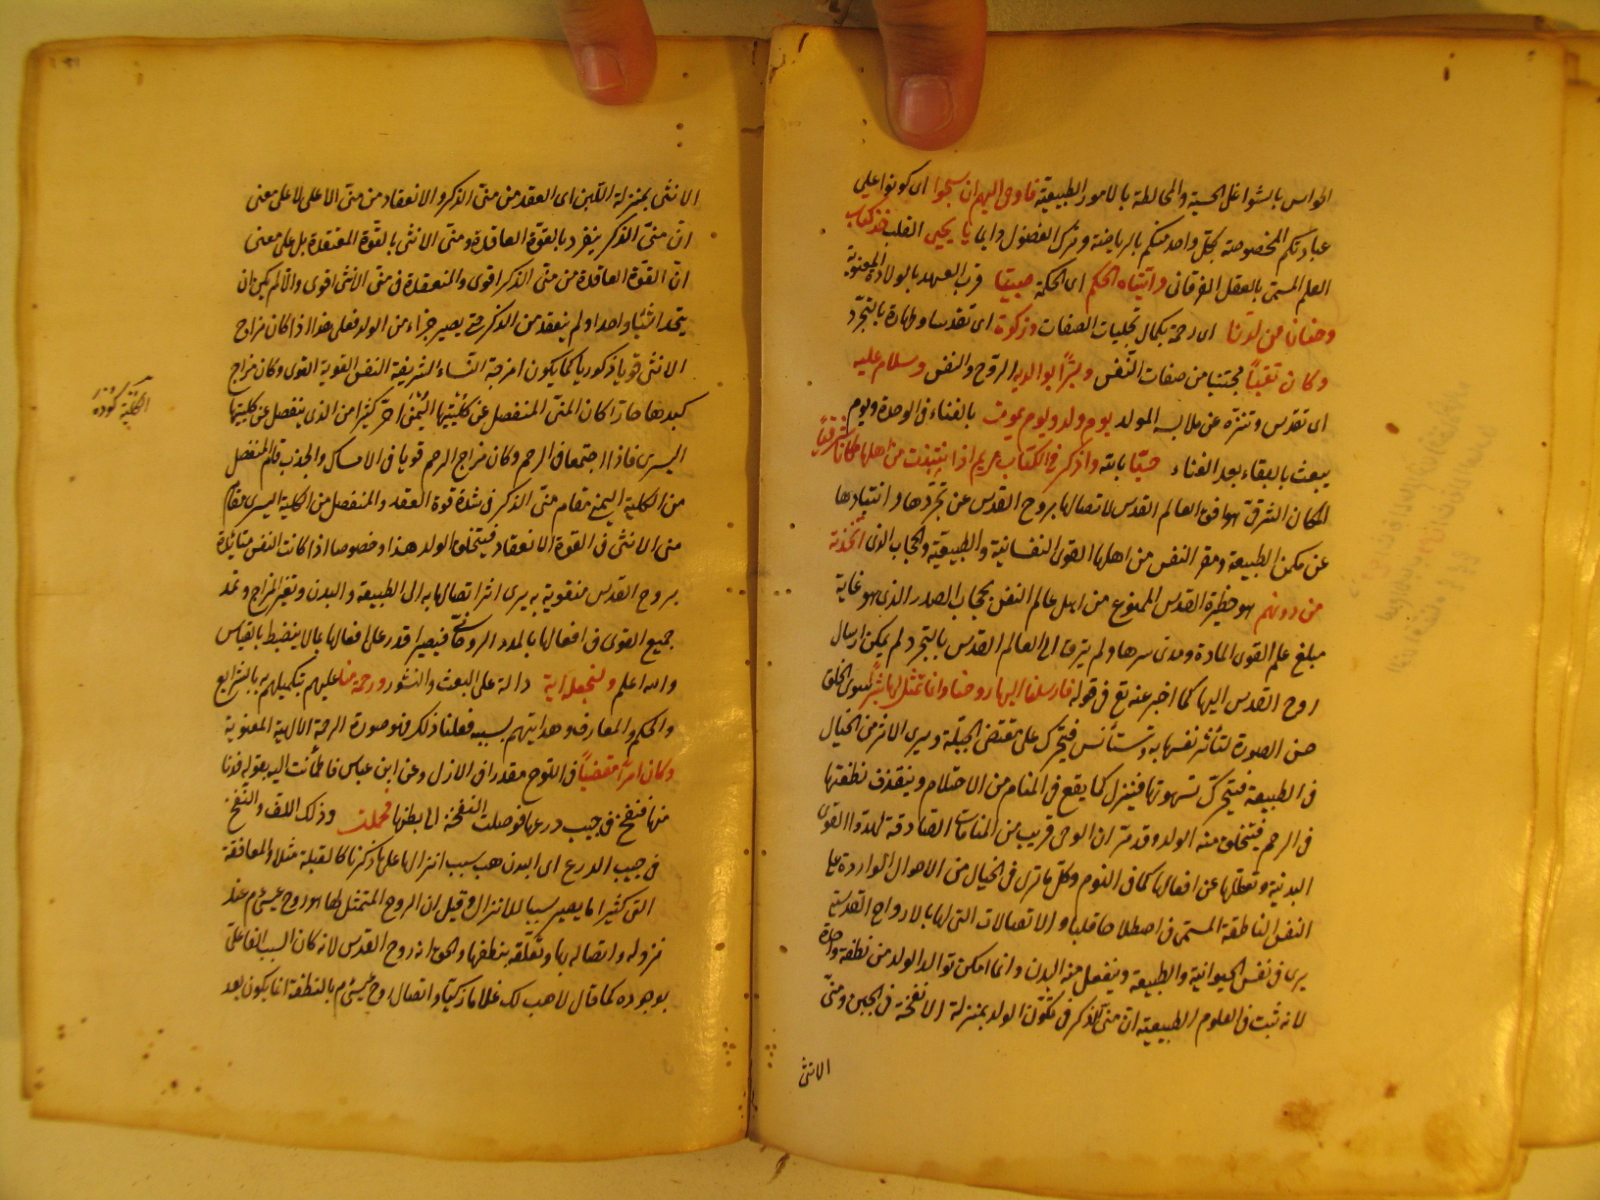 الحواس بالشواغل الحسية والمخالطة بالامور الطبيعية فاوحى اليهم ان سبحوا اى كونوا على
عبادتكم المخصوصة بكل واحد منكم بالرياضة وترك الفضول دايما يا يحيى القلب خذ كتاب
العلم المسمى بالعقل الفرقانى واتيناه الحكم اى الحكمة صبيا قرب العهد بالولادة المعنوية
وحنانا من لدنا اى رحمة بكمال تجليات الصفات وزكوة اى تقدسا وطهارة بالتجرد
وكان تقيا مجتنبا من صفات النفس وبرا بوالديه الروح والنفس وسلام عليه
اى تقدس وتنزه عن ملابسه المولد يوم ولد ويوم يموت بالفناء فى الوحدة ويوم
يبعث بالبقاء بعد الفناء حيا بالله واذكر فى الكتاب مريم اذ انتبذت من اهلها مكانا شرقيا
المكان الشرقى هو افق العالم القدس لاتصالها بروح القدس عن تجردها وانتباذها
عن مكمن الطبيعة ومقر النفس من اهلها القوى النفسانية والطبيعية والحجاب الذى اتخذته
من دونهم هو حظيرة القدس الممنوع من اهل عالم النفس بحجاب الصدر الذى هو غاية
مبلغ علم القوى المادة ومدى سرها ولم يترق الى العالم القدس بالتجرد لم يمكن ارسال
روح القدس اليها كما اخبر عنه تع فى قوله فارسلنا اليها روحنا وانما تمثل لها بشرا سوى الخلق
حسن الصورة لتتأثر نفسها به وتستأنس فيتحرك على مقتضى الجبلة ويسرى الاثر من الخيال
فى الطبيعة فتتحرك شهوتها فينزل كما يقع فى المنام من الاحتلام وينقذف نطفتها
فى الرحم فيتخلق منه الولد وقد مر ان الوحى قريب من المنامات الصادقة لهدوا القوى
البدنية وتعطلها عن افعالها كما فى النوم وكل ما ترى فى الخيال من الاحوال الواردة على
النفس الناطقة المسمى فى اصطلاحنا قلبا والاتصالات التى لها بالارواح القدسية
يرى فى نفس الحيوانية والطبيعة وينفعل منه البدن وانما امكن توالد الولد من نطفة واحدة
لانه ثبت فى العلوم الطبيعية ان منى الذكر فى تكون الولد بمنزلة الانفخة فى الجبن ومنى
الانثى
الانثى بمنزلة اللبن اى العقد من منى الذكر والانعقاد من منى الاعلى لا على معنى
ان منى الذكر ينفرد بالقوة العاقدة ومنى الانثى بالقوة المنعقدة بل على معنى
ان القوة العاقدة من منى الذكر اقوى والمنعقدة فى منى الانثى اقوى والا لم يمكن ان
يتحدا شيئا واحدا ولم ينعقد من الذكر حتى يصير جزاء من الولد فعلى هذا اذا كان مزاج
الانثى قويا ذكوريا كما يكون امزجة النساء الشريفة النفس القوية القوى وكان مزاج
كبدها حارا كان المنى المنفصل عن كليتها اليمنى احر كثيرا من الذى ينفصل عن كليتها
اليسرى فاذا اجتمعا فى الرحم وكان مزاج الرحم قويا فى الامساك والجذب قام المنفصل
من الكلية اليمنى مقام منى الذكر فى شدة قوة العقد والمنفصل من الكلية اليسرى مقام
منى الانثى فى القوة الانعقاد فيتخلق الولد هذا وخصوصا اذا كانت النفس متايدة
بروح القدس متقوية به يرى اثر اتصالها به الى الطبيعة والبدن وتغير المزاج وتمد
جميع القوى فى افعالها بالمدد الروحانى فيصير اقدر على افعالها بما لا ينضبط بالقياس
والله اعلم ولنجعله اية دالة على البعث والنشور ورحمة منا عليهم بتكميلهم به بالشرايع
والحكم والمعارف وهدايتهم بسببه فعلنا ذلك فهو صورة الرحمة الالهية المعنوية
وكان امرا مقضيا فى اللوح مقدرا فى الازل وعن ابن عباس فاطمأنت اليه بقوله فدنا
منها فنفخ فى جيب درعها فوصلت النفخة الى بطنها فحملت وذلك اللف والنفخ
فى جيب الدرع اى البدن هب سبب انزالها على ما ذكرنا كالقبلة مثلا والمعانقة
التى كثيرا ما يصير سببا للانزال وقيل ان الروح المتمثل لها هو روح عيسى م عند
نزوله واتصاله بها وتعلقه بنطفها والحق انه روح القدس لانه كان السبب الفاعلى
بوجوده كما قال لاهب لك غلاما زكيا واتصال روح عيسى م بالنطفة انما يكون بعد